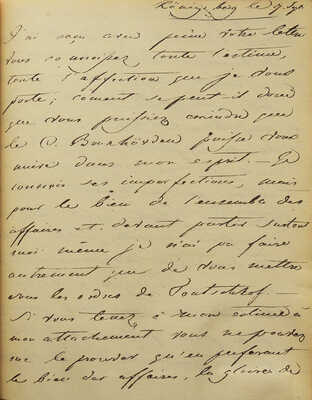 le 9 Sep
J'ai reçu avec peine votre lettre
vous connaissez toute l'estime,
toute l'affection que je vous
porte; coment se peut-il donc
que vous puissiez craindre que
le C. Bouxhövden puisse vous
nuire dans mon esprit. — Je
connois ses imperfections, mais
pour le bien de l'ensemble des
affaires et devant partir surtout
moi même je n'ai pu faire
autrement que de vous mettre
sous les ordres de
Si vous tenez à mon estime à
mon attachement vous ne pouvez
me le prouver qu'en préferant
le bien des affaires, la gloire de